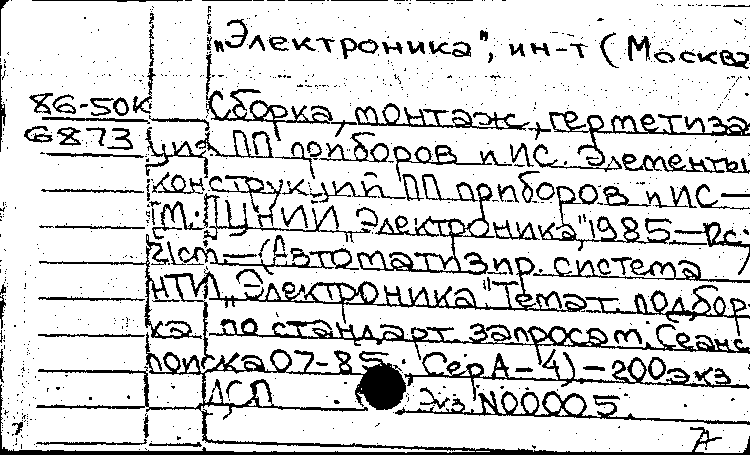 „Электроника", ин-т (Москва
86-50К Сборка, монтаж, герметиза
6873 ция ПП приборов и ИС. Элементы
конструкций ПП приборов и ИС —
[М.:] ЦНИИ „Электроника", 1985.—
21см.—(Автоматизир. система
НТИ „Электроника". Темат. подбор
ка по стандарт. запросам. Сеанс
поиска 07-85; Сер А-4).—200экз
ДСП Экз. N00005.